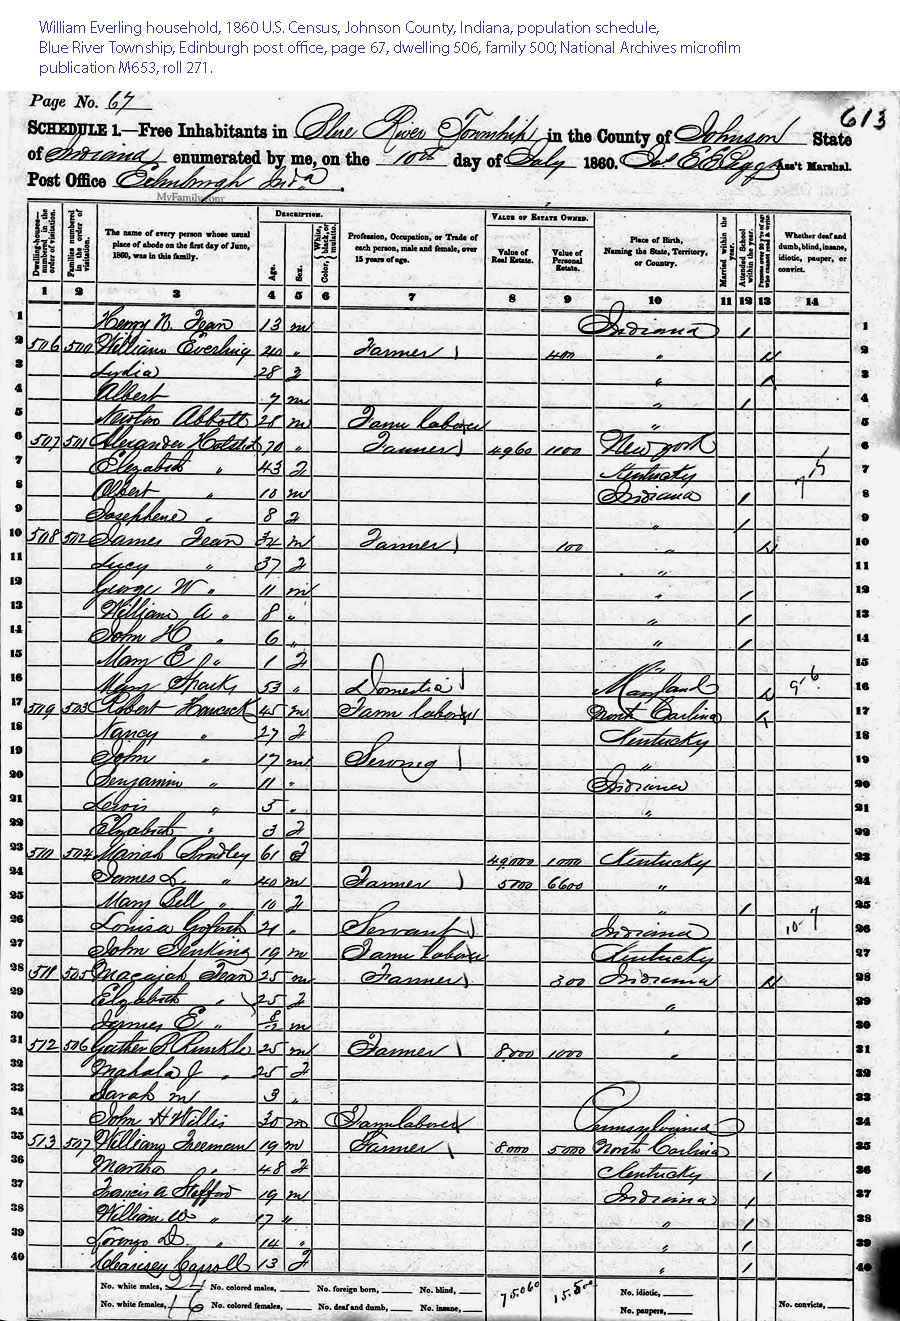 William Everling household, 1860 U.S. Census, Johnson County, Indiana, population schedule,
Blue River Township, Edinburgh post office, page 67, dwelling 506, family 500; National Archives microfilm
publication M653, roll 271.
Page No. 67
613
SCHEDULE 1.—Free Inhabitants in Blue River Township in the County of Johnson State
of Indiana enumerated by me, on the 10th day of July 1860. Ass't Marshal.
Post Office Edinburgh Inda.
MyFamily.com
Dwelling-houses—numbered in the order of visitation.
Families numbered in the order of visitation.
The name of every person whose usual place of abode on the first day of June, 1860, was in this family.
DESCRIPTION.
Age.
Sex.
Color, White, black, or mulatto.
Profession, Occupation, or Trade of each person, male and female, over 15 years of age.
VALUE OF ESTATE OWNED.
Value of Real Estate.
Value of Personal Estate.
Place of Birth, Naming the State, Territory, or Country.
Married within the year.
Attended School within the year.
Persons over 20 y'rs of age who cannot read & write
Whether deaf and dumb, blind, insane, idiotic, pauper, or convict.
1 2 3 4 5 6 7 8 9 10 11 12 13 14
1 Henry N. 13 m Indiana 1 1
2 506 500 William Everling 40 " Farmer 1 400 " 2
3 Lydia 28 f " 3
4 Albert 7 m " 1 4
5 Newton Abbott 28 m Farm laborer " 5
6 507 501 Alexander 70 " Farmer 1 4960 1100 New York 6
7 Elizabeth " 43 f Kentucky 7
8 Albert " 10 m Indiana 1 8
9 Josephene " 8 f " 1 9
10 508 502 James 32 m Farmer 1 100 " 10
11 Lucy " 37 f " 11
12 George W " 11 m " 1 12
13 William A " 8 " " 1 13
14 John H " 6 " " 1 14
15 Mary E " 1 f " 15
16 Mary Sparks 53 " Domestic 1 Maryland 16
17 509 503 Robert Hancock 45 m Farm laborer North Carlina 17
18 Nancy " 27 f Kentucky 18
19 John " 17 m 1 " 19
20 Benjamin " 11 " Indiana 20
21 Lewis " 5 " " 21
22 Elizabeth " 3 f 22
23 510 504 Mariah 61 f 49,000 1000 Kentucky 23
24 James L " 40 m Farmer 1 5000 6600 " 24
25 Mary Bell " 10 f " 1 25
26 Louisa 21 " Servant 1 Indiana 26
27 John Jenkins 19 m Farm laborer Kentucky 27
28 511 505 25 m Farmer 1 300 Indiana 28
29 Elizabeth " 25 f " 29
30 James E " 8/12 m " 30
31 512 506 Runkle 25 m Farmer 1 8,000 1000 " 31
32 Mahala J " 25 f 32
33 Sarah M 3 " 33
34 John H Willis 30 m Farm laborer Pennsylvania 34
35 513 507 William Freeman 19 m Farmer 1 8,000 5000 North Carlina 35
36 Martha " 48 f Kentucky 1 36
37 Francis A Stafford 19 m Indiana 1 37
38 William W " 17 " " 1 38
39 Lorenzo D. " 14 " " 1 39
40 Carroll 13 f " 1 40
No. white males, 24 No. colored males, No. foreign born, No. blind, 75,060 15,500 No. idiotic,
No. white females, 16 No. colored females, No. deaf and dumb, No. insane, No. paupers, No. convicts,